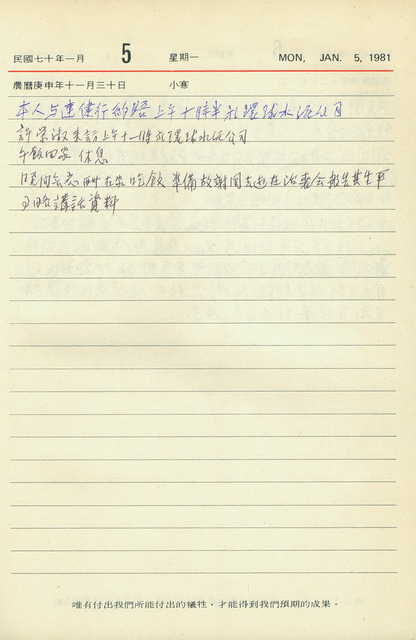 民國七十年一月 5 星期一 MON, JAN. 5, 1981
農曆庚申年十一月三十日 小寒
本人与連健行約晤上午十時半於環球水泥公司
許榮淑來訪上午十一時於環球水泥公司
午飯回家 休息
晚間在家吃飯 準備故謝國 在治喪會報告其生平
事略講話資料
唯有付出我們所能付出的犧牲,才能得到我們預期的成果。